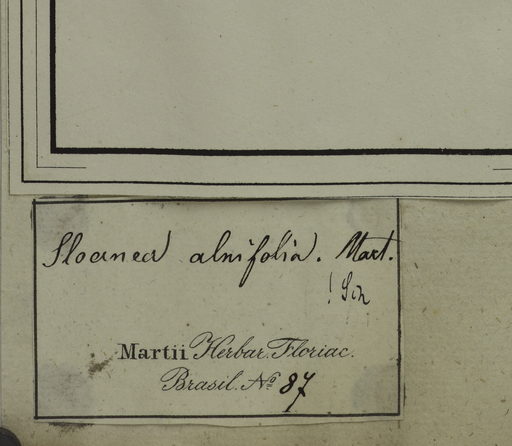 Sloanea alnifolia. Mart.
Martii Herbar. Floriae.
Brasil. No 87